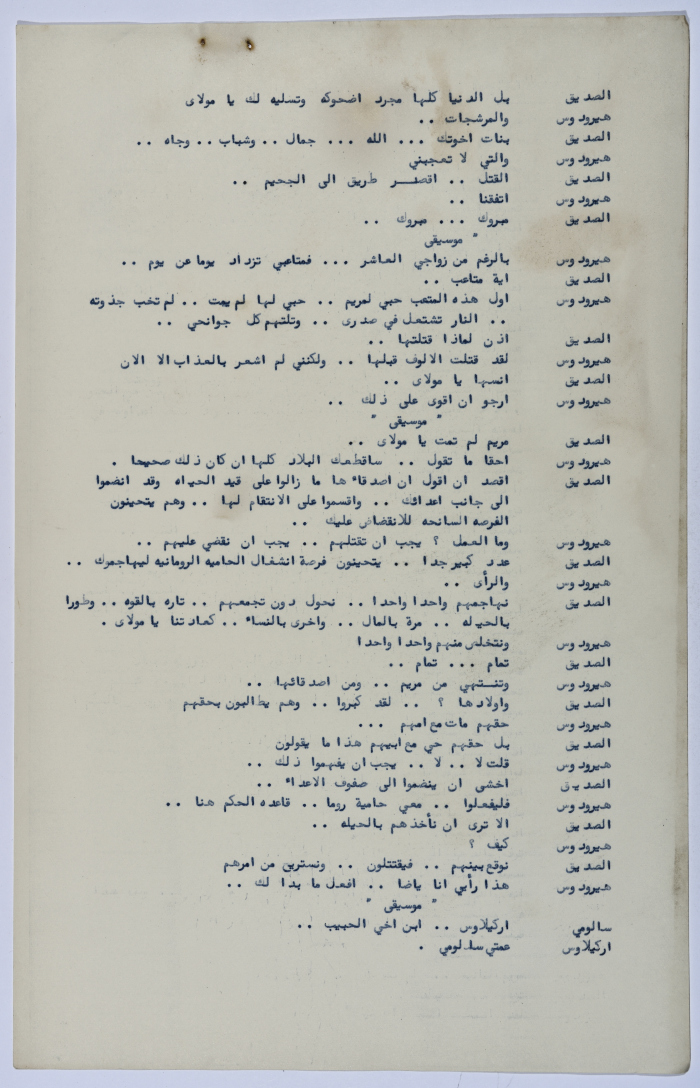 الصديق بل الدنيا كلها مجرد اضحوكه وتسليه لك يا مولاى
هيرودوس والمرشحات ..
الصديق بنات اخوتك ... الله ... جمال .. وشباب .. وجاه ..
هيرودوس والتي لا تعجبني
الصديق القتل .. اقصر طريق الى الجحيم ..
هيرودوس اتفقنا ..
الصديق مبروك ... مبروك ..
" موسيقى
هيرودوس بالرغم من زواجي العاشر ... فمتاعبي تزداد يوما عن يوم ..
الصديق اية متاعب ..
هيرودوس اول هذه المتعب حبي لمريم .. حبي لها لم يمت .. لم تخب جذوته
.. النار تشتعل في صدرى .. وتلتهم كل جوانحي ..
الصديق اذن لماذا قتلتها ..
هيرودوس لقد قتلت الالوف قبلها .. ولكنني لم اشعر بالعذاب الا الان
الصديق انسها يا مولاى ..
هيرودوس ارجو ان اقوى على ذلك ..
" موسيقى "
الصديق مريم لم تمت يا مولاى ..
هيرودوس احقا ما تقول .. ساقطعك البلاد كلها ان كان ذلك صحيحا .
الصديق اقصد ان اقول ان اصدقاءها ما زالوا على قيد الحياه وقد انضموا
الى جانب اعدائك .. واقسموا على الانتقام لها .. وهم يتحينون
الفرصه السانحه للانقضاض عليك ..
هيرودوس وما العمل ؟ يجب ان تقتلهم .. يجب ان نقضي عليهم ..
الصديق عدد كبير جدا .. يتحينون فرصة انشغال الحاميه الرومانيه ليهاجموك ..
هيرودوس والرأى ..
الصديق نهاجمهم واحدا واحدا .. نحول دون تجمعهم .. تاره بالقوه .. وطورا
بالحيله .. مرة بالمال .. واخرى بالنساء .. كعادتنا يا مولاى .
هيرودوس ونتخلص منهم واحدا واحدا
الصديق تمام ... تمام ..
هيرودوس وتنتهي من مريم .. ومن اصدقائها ..
الصديق واولادها ؟ .. لقد كبروا .. وهم يطالبون بحقهم
هيرودوس حقهم مات مع امهم ...
الصديق بل حقهم حي مع ابيهم هذا ما يقولون
هيرودوس قلت لا .. لا .. يجب ان يفهموا ذلك ..
الصديق اخشى ان ينضموا الى صفوف الاعداء ..
هيرودوس فليفعلوا .. معي حامية روما .. قاعده الحكم هنا ..
الصديق الا ترى ان نأخذهم بالحيله ..
هيرودوس كيف ؟
الصديق نوقع بينهم .. فيقتتلون .. ونستريح من امرهم
هيرودوس هذا رأيي انا ياضا .. افعل ما بدا لك ..
" موسيقى "
سالومي اركيلاوس .. ابن اخي الحبيب ..
اركيلاوس عمتي سالومي .